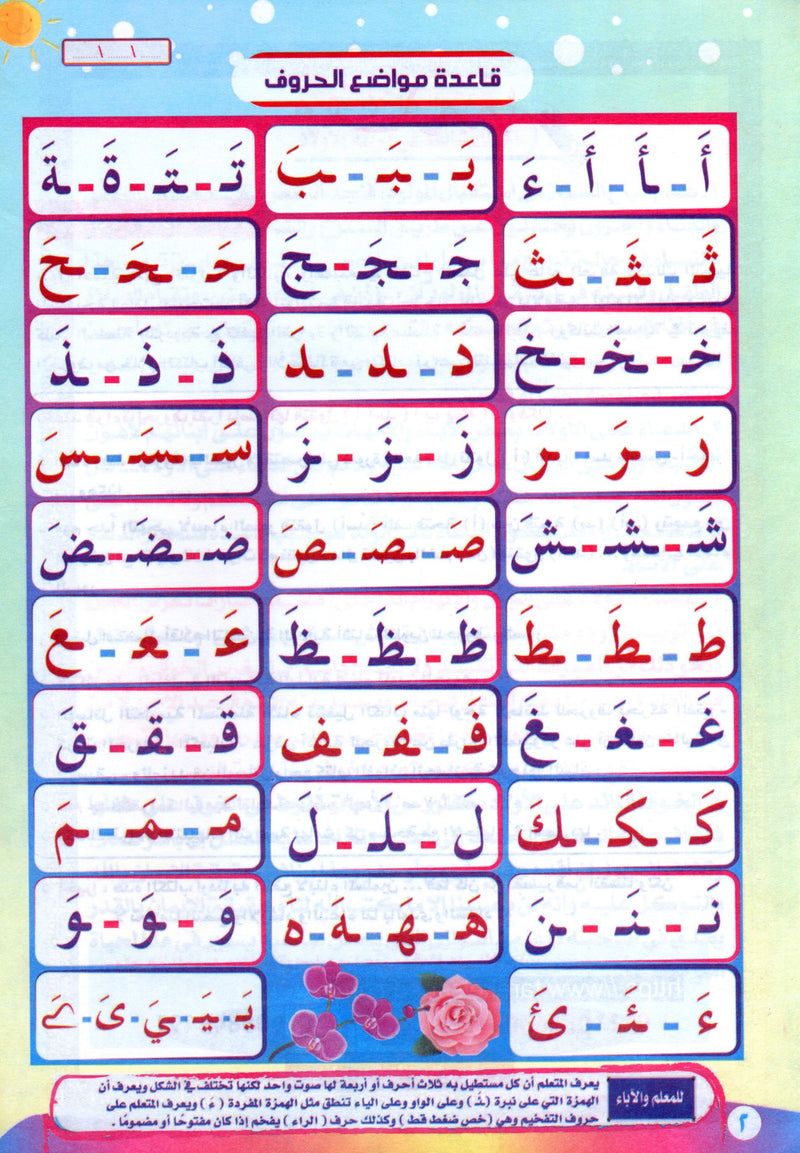 ١ ١
قاعدة مواضع الحروف
أَ ـ ـأَ ـ أَ ـ ءَ
بَـ ـ ـبَـ ـ ـبَ
تَـ ـ ـتَـ ـ ةَ ـ ـةَ
ثَـ ـ ـثَـ ـ ـثَ
جَـ ـ ـجَـ ـ ـجَ
حَـ ـ ـحَـ ـ ـحَ
خَـ ـ ـخَـ ـ ـخَ
دَ ـ ـد ـ ـد
د ـ ذَ ـ ـذ
رَ ـ ـرَ ـ ـرَ
زَ ـ ـزَ ـ ـزَ
سَـ ـ ـسَـ ـ ـسَ
شَـ ـ ـشَـ ـ ـشَ
صـ ـ ـصـ ـ ـص
ضَـ ـ ـضَـ ـ ـضَ
طَ ـ ـطَ ـ ـطَ
ظَ ـ ـظَ ـ ـظَ
عَـ ـ ـعَـ ـ ـعَ
غَـ ـ ـغَـ ـ ـغَ
فَـ ـ ـفَـ ـ ـف
قَـ ـ ـقَـ ـ ـق
كَـ ـ ـكَـ ـ ـك
لَـ ـ ـلَـ ـ ـلَ
مَـ ـ ـمَـ ـ ـم
نَـ ـ ـنـ ـ ـن
هَـ ـ ـهـ ـ ـه
و ـ ـو ـ ـو
ءَ ـ ـئـ ـ ـئَ
يَـ ـ ـيَـ ـ ـيَ ـ ىَ ـ ـےَ
للمعلم والآباء
يعرف المتعلم أن كل مستطيل به ثلاث أحرف أو أربعة لها صوت واحد لكنها تختلف في الشكل ويعرف أن
الهمزة التي على نبرة (ـئَـ) وعلى الواو وعلى الياء تنطق مثل الهمزة المفردة (ءَ) ويعرف المتعلم على
حروف التفخيم وهي (خص ضغط قط) وكذلك حرف (الراء) يفخم إذا كان مفتوحًا أو مضمومًا.
٢